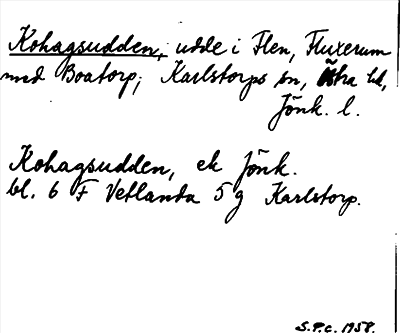 Kohagsudden, udde i Flen, Fluxerum
med Boatorp, Karlstorps sn, Östra hd,
Jönk. l.
Kohagsudden, ek Jönk.
bl. 6 F Vetlanda 5 g Karlstorp.
S.P.C. 1958.